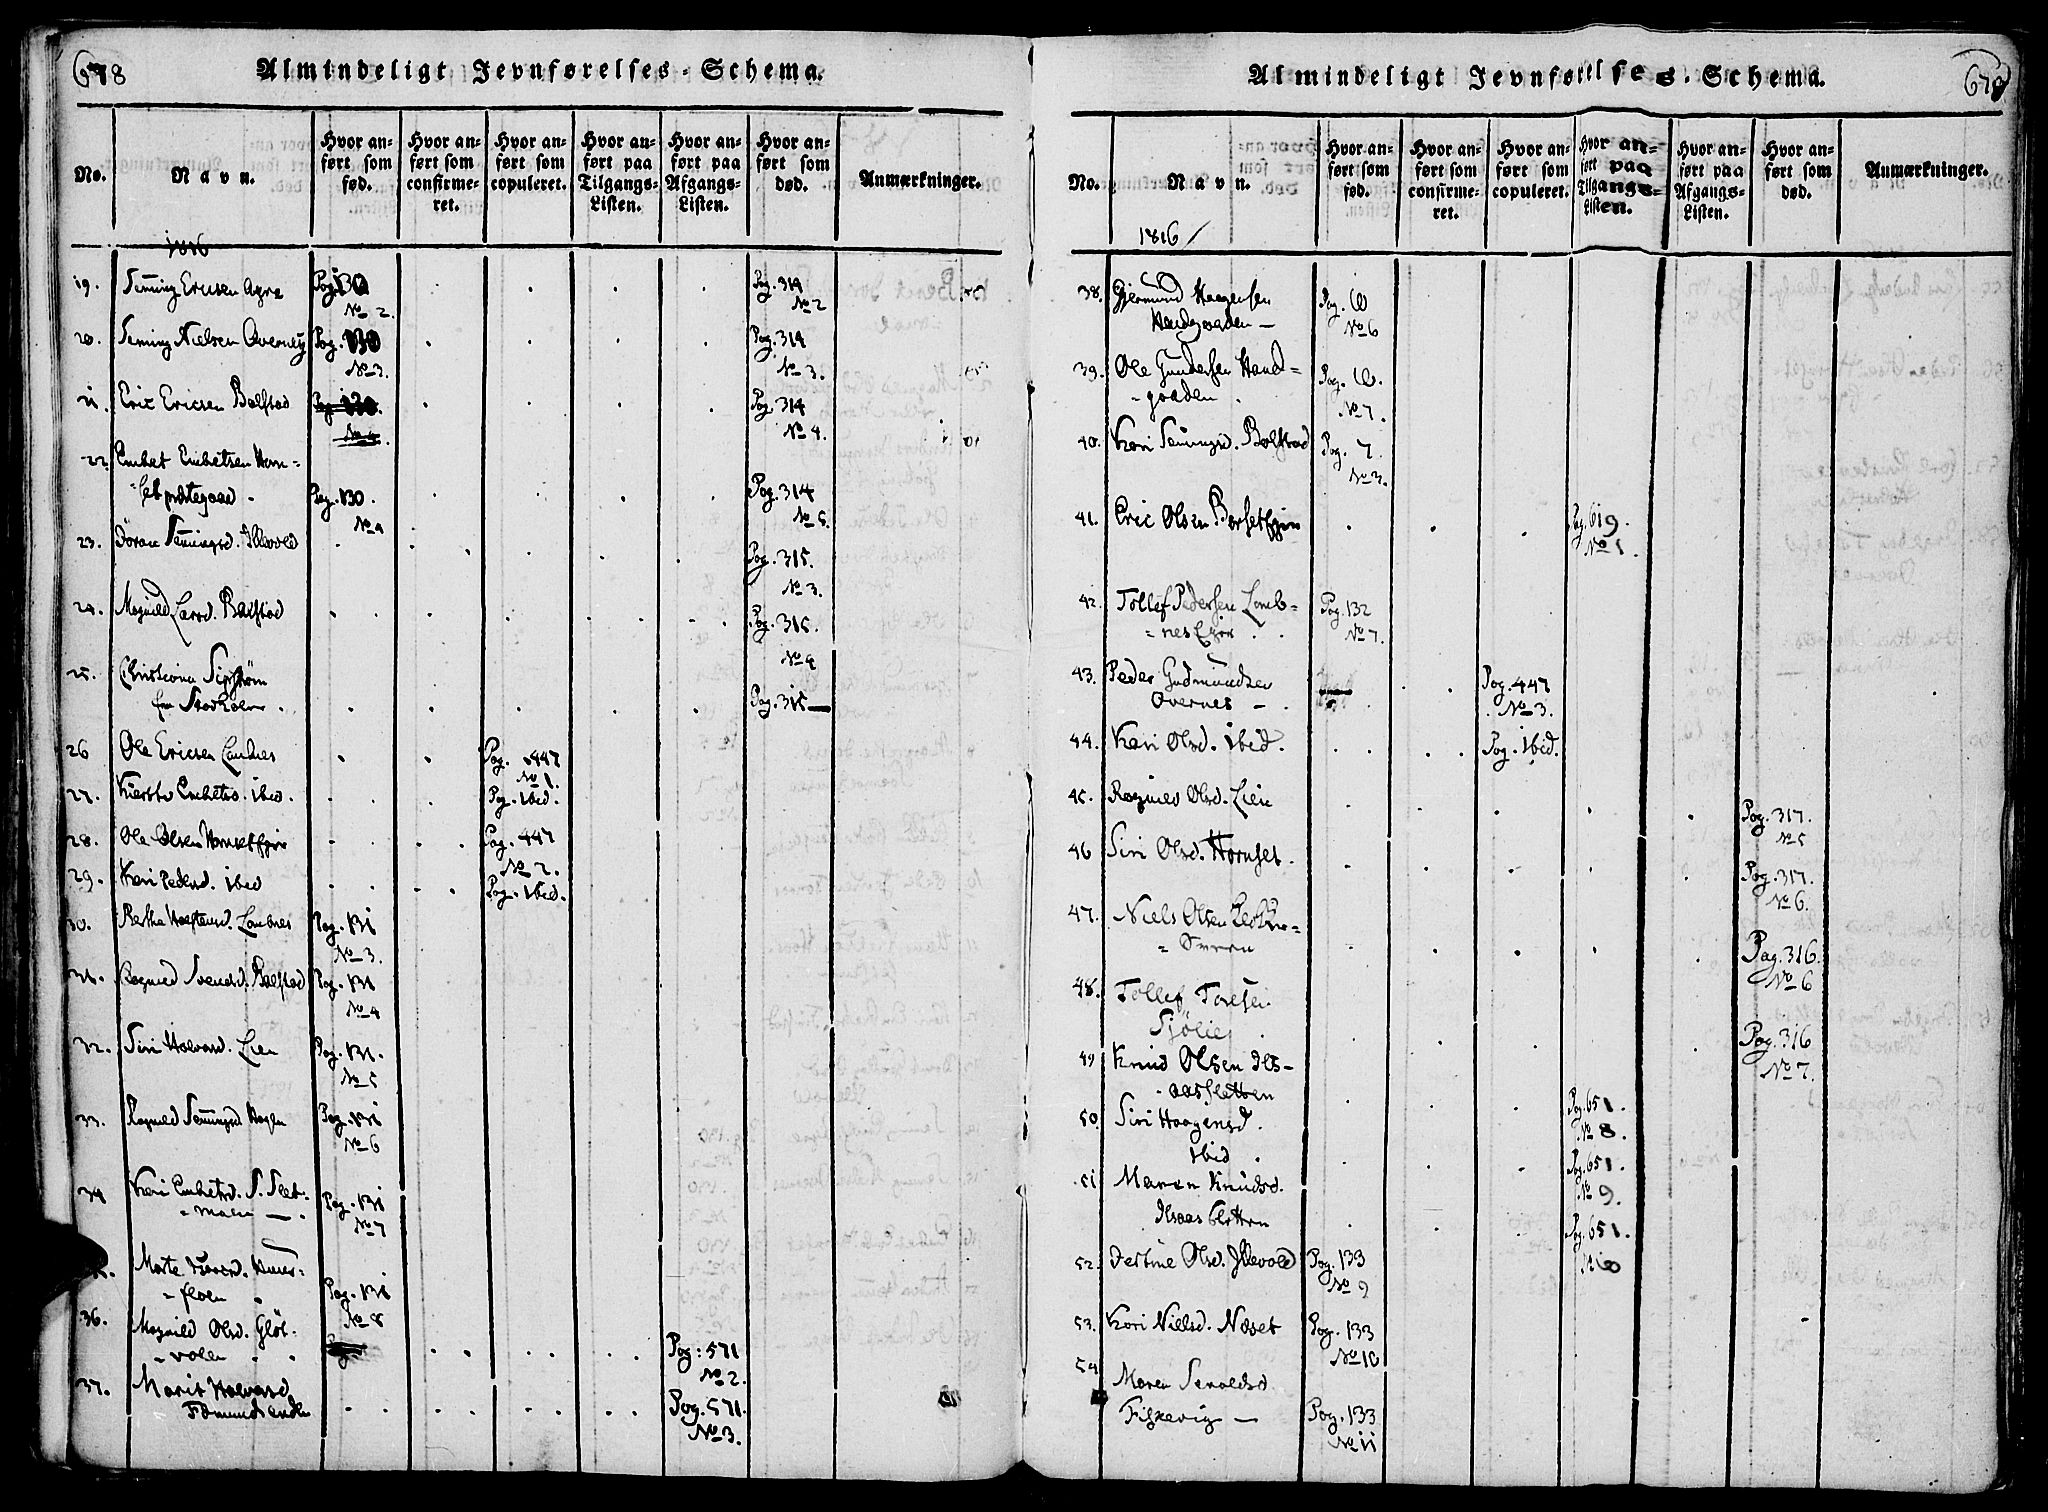 678
Almindeligt Jevnførelses-Schema.
No.
Navn.
Hvor an-
ført som
fød.
Hvor an-
ført som
confirme-
ret.
Hvor an-
ført som
copuleret.
Hvor an-
ført paa
Tilgangs-
Listen.
Hvor an-
ført paa
Afgangs-
Listen.
Hvor an-
ført som
død.
Anmærkninger.
1816
19. Semming Ericsen Agre Pag. 130 Pag. 314
No 2. No 2
20. Seming Nielsen Overneß Pag. 130 Pag. 314
No 3. No 3.
21. Eric Ericsen Bolstad Pag. 130. Pag. 314
No 4. No 4.
22. Embet Embetsen Horn-
set præstegaard - Pag. 130. Pag. 314
No 4 No 5.
23. Göran Semingsd. Illevold Pag. 315.
No 3.
24. Magnild Larsd. Bolstad Pag. 315.
No 4
25. Christiana
fra Stockolm. Pag. 315
26 Ole Ericsen Landnes Pag. 447
No 1.
27. Kiersti Embetsd. ibid. Pag. ibid.
28. Ole Olsen Hornset Pag. 447
No 2.
29. Kari Pedersd. ibid Pag. ibid.
30. Berthe Halstensd. Landnes Pag. 131
No 3.
31. Ragnild Svendsd. Bolstad Pag. 131
No 4
32. Siri Halvorsd. Lien Pag. 131.
No 5
33. Ragnild Semingsd Hagen Pag. 131
No 6
34 Kari Embetsd. S. Slet-
= moen — . Pag. 131
No 7
35. Marte
= floen Pag. 131
No 8
36. Magnild Olsd. Glöt-
= volen Pag: 571
No 2.
37. Marit Halvorsd
Fæmundsenden Pag. 571.
No 3.
679
Almindeligt Jevnførelses-Schema.
No.
Navn.
Hvor an-
ført som
fød.
Hvor an-
ført som
confirme-
ret.
Hvor an-
ført som
copuleret.
Hvor an-
ført paa
Tilgangs-
Listen.
Hvor an-
ført paa
Afgangs-
Listen.
Hvor an-
ført som
død.
Anmærkninger.
1816
38. Gjermund Haagensen
Haudgaarden — Pag. 6
No 6
39. Ole Gundersen Haud=
= gaarden Pag. 6.
No 7.
40. Kari Semingsd. Bolstad Pag. 7
No 3.
41. Eric Olsen Pag. 619.
No 1.
42. Tollef Pedersen Landb- Pag. 132
No 7.
43. Peder Gudmundsen
Overnes — Pag. 447
No 3.
44. Kari Olsd. ibid. Pag. ibid.
45. Ragnild Olsd. Lien Pag. 317.
No 5
46 Siri Olsd. Hornset. Pag. 317.
No 6.
47. Niels Olsen Pag. 316.
No 6
48. Tollef Toresen
Sjölie Pag. 316
No 7.
49 Knud Olsen Ils-
= aassletten Pag. 651.
No 8.
50. Siri Haagensd.
ibid Pag. 651.
No 9.
51 Maren Knudsd.
Ilsaassletten Pag. 651.
No 10
52. Jertine Olsd. Illevold Pag. 133
No 9
53. Kari Nielsd. Næset Pag. 133
No 10
54 Maren
Fiskevig — Pag. 133
No 11